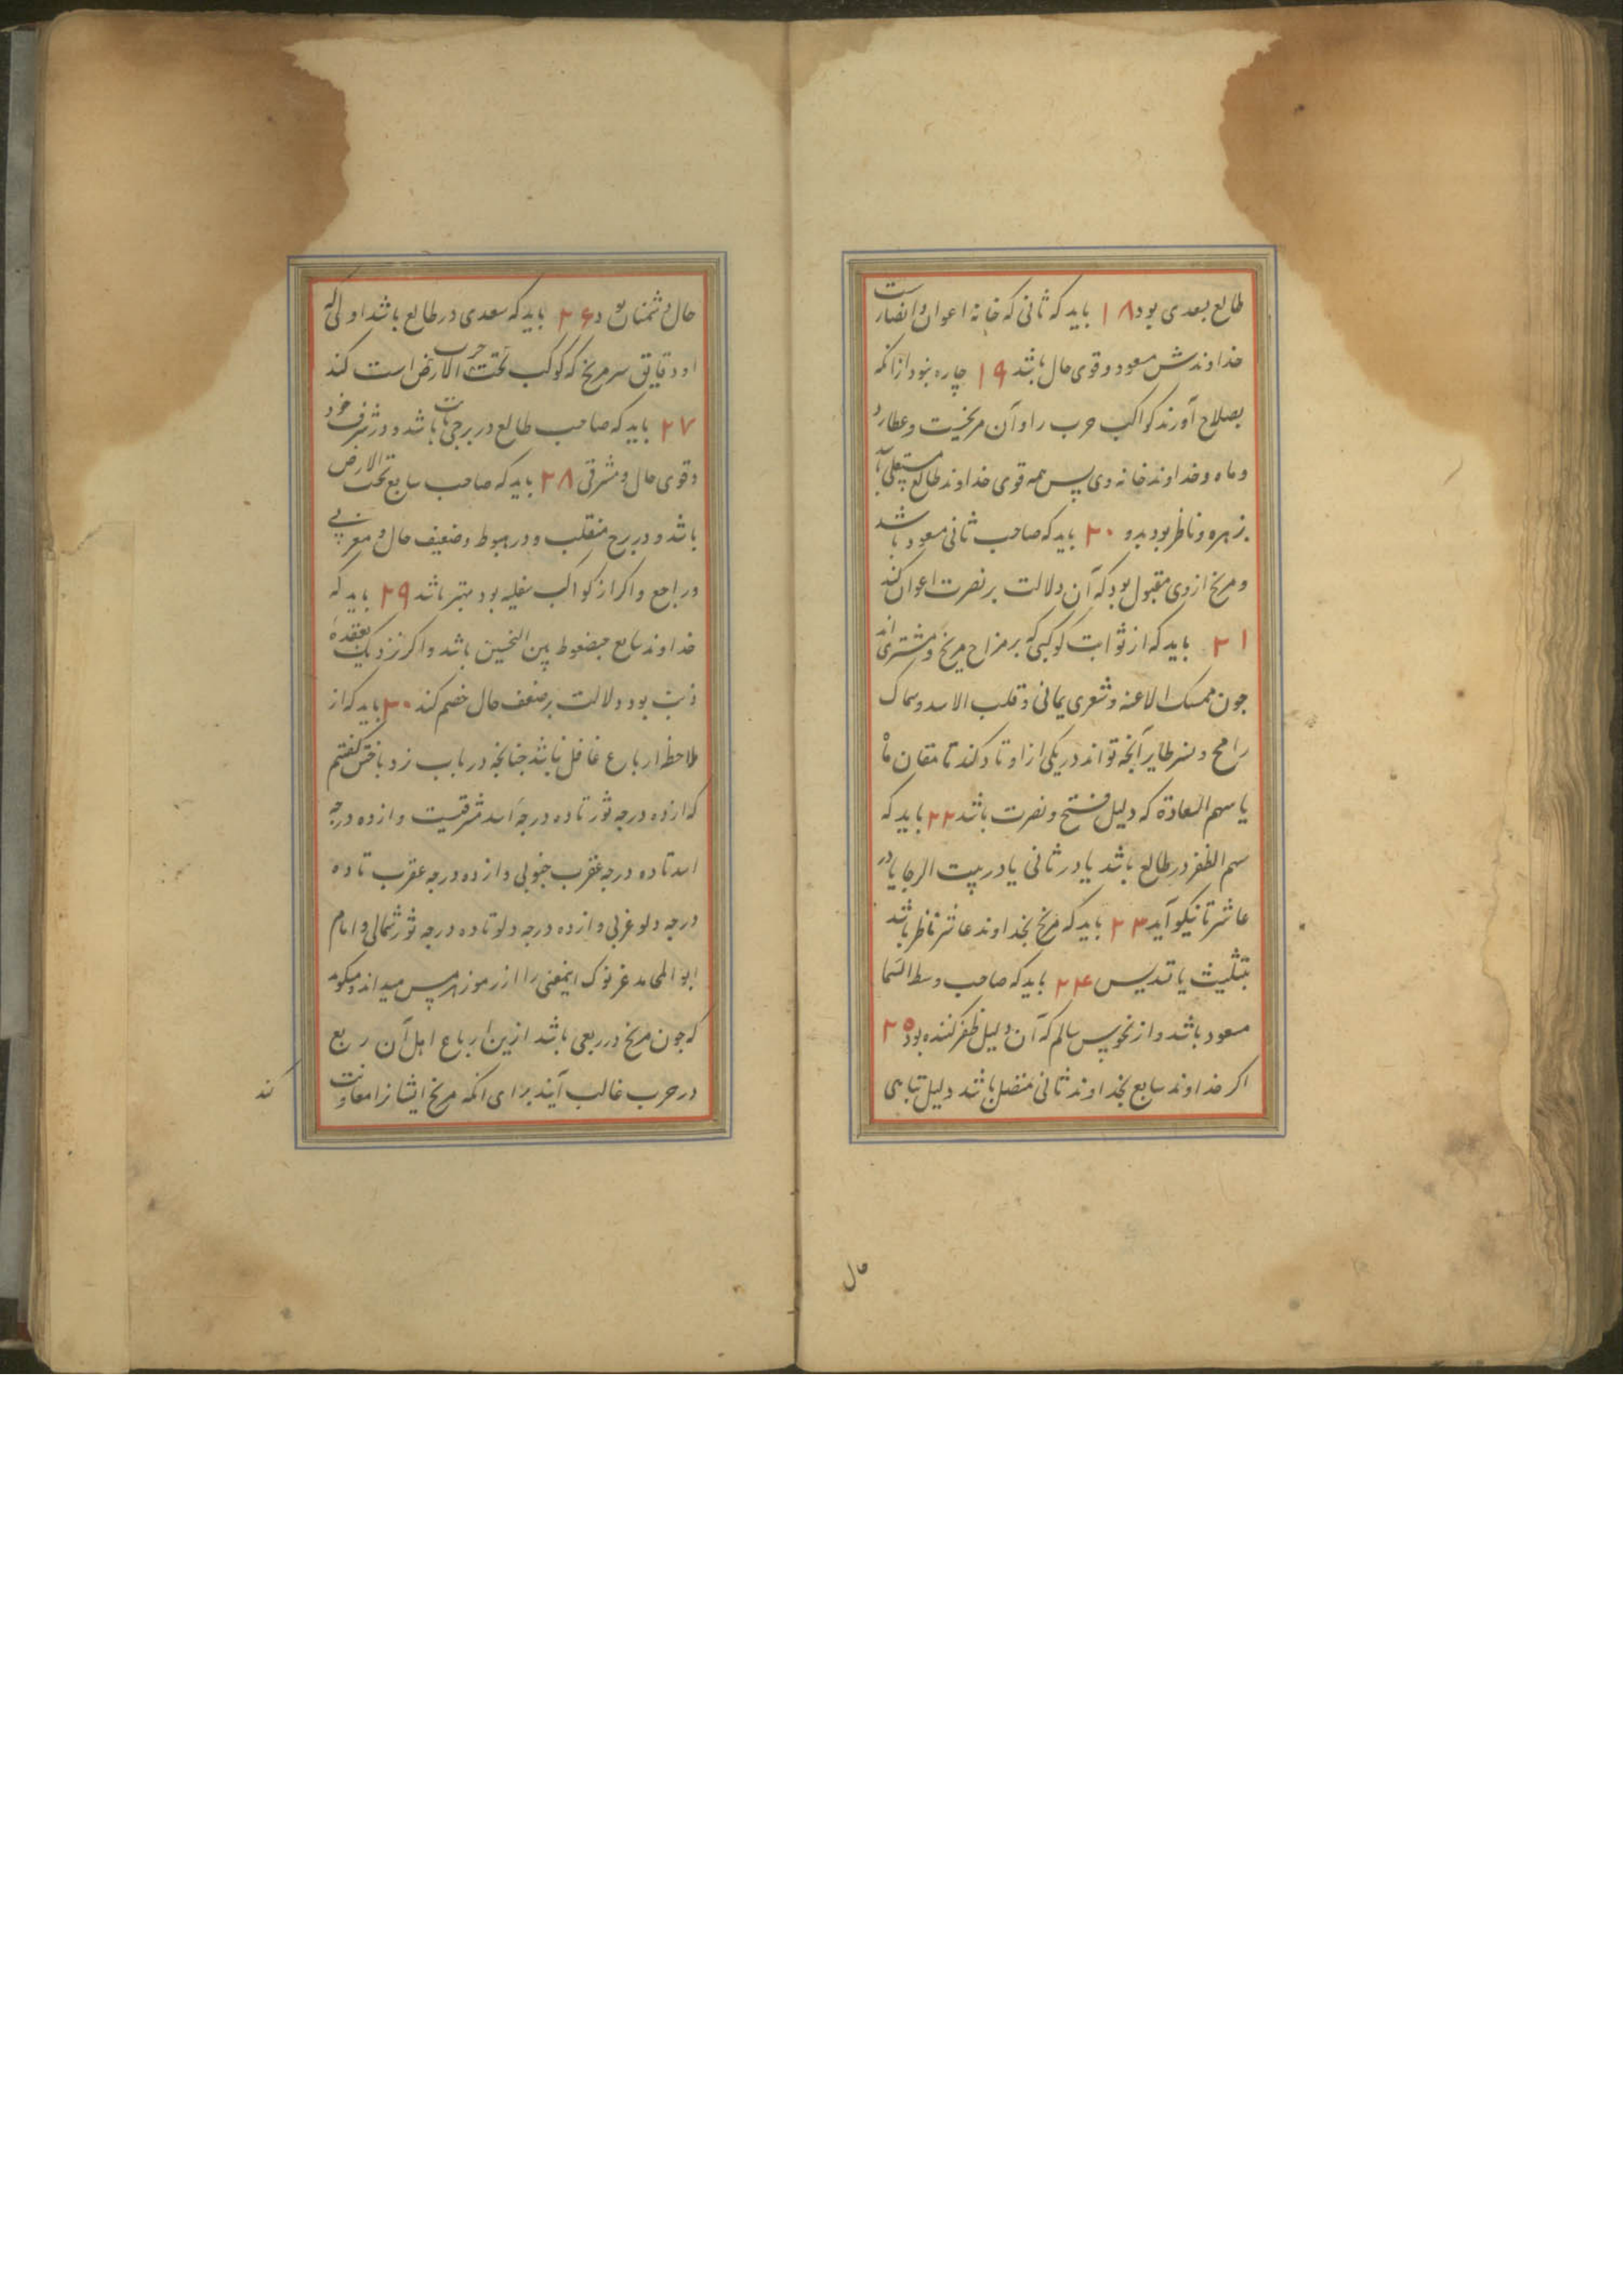 طالع بعدی بود ۱۸ باید که ثانی که خانه اعوان و انصارست
خداوندش مسعود و قوی حال باشد ۱۹ چاره نبود از آنکه
بصلاح آورند کواکب حرب را و آن مریخست و عطارد
و ماه و خداوند خانه وی پس همه قوی خداوند طالع مستعلی باید
بزهره و ناظر بود بدو ۲۰ باید که صاحب ثانی مسعود باشد
و مریخ از وی مقبول بود که آن دلالت بر نصرت اعوان کند
۲۱ باید که از ثوابت کوکبی که بر مزاج مریخ و مشتری اند
چون ممسک الاعنه و شعری یمانی و قلب الاسد و سماک
رامح و نسر طایر آنچه تواند در یکی از اوتاد کند تا مقان ماه
یا سهم السعادة که دلیل فتح و نصرت باشد ۲۲ باید که
سهم الظفر در طالع باشد یا در ثانی یا در بیت الرجا یا در
عاشر تا نیکو آید ۲۳ باید که مریخ بخداوند عاشر ناظر باشد
بتثلیث یا تسدیس ۲۴ باید که صاحب وسط السما
مسعود باشد و از نحوس سالم که آن دلیل ظفر کننده بود ۲۵
اکر خداوند سابع بخداوند ثانی متصل باشد دلیل تباهی
حال دشمنان بود ۲۶ باید که سعدی در طالع باشد اولی که
او دقایق سر مریخ که کوکب حرب تحت الارض است کند
۲۷ باید که صاحب طالع در برجی ثابت باشد و در شرف خود
و قوی حال و مشرقی ۲۸ باید که صاحب سابع تحت الارض
باشد و در برج منقلب و در هبوط و ضعیف حال و مغربی
و راجع و اکر از کواکب سفلیه بود بهتر باشد ۲۹ باید که
خداوند سابع مضغوط بین النحسین باشد و اکر نزدیک بعقده
ذنب بود دلالت بر ضعف حال خصم کند ۳۰ باید که از
ملاحظه ارباع غافل نباشد چنانچه در باب نرد باختن کفتیم
که از ده درجه ثور تا ده درجه اسد شرقیست و از ده درجه
اسد تا ده درجه عقرب جنوبی و از ده درجه عقرب تا ده
درجه دلو غربی و از ده درجه دلو تا ده درجه ثور شمالی و امام
ابو المحامد غزنوی اینمعنی را از رموز هرمس میداند و میکوید
که چون مریخ در ربعی باشد ازین ارباع اهل آن ربع
در حرب غالب آیند برای آنکه مریخ ایشانرا معاونت
کند